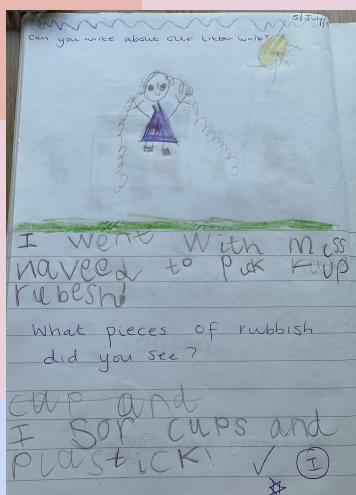 5/July/
Can you write about our litter walk?
I went with miss
naveed to pick up
rubesh!
What pieces of rubbish
did you see?
cup and
I sor cups and
plastick!
I